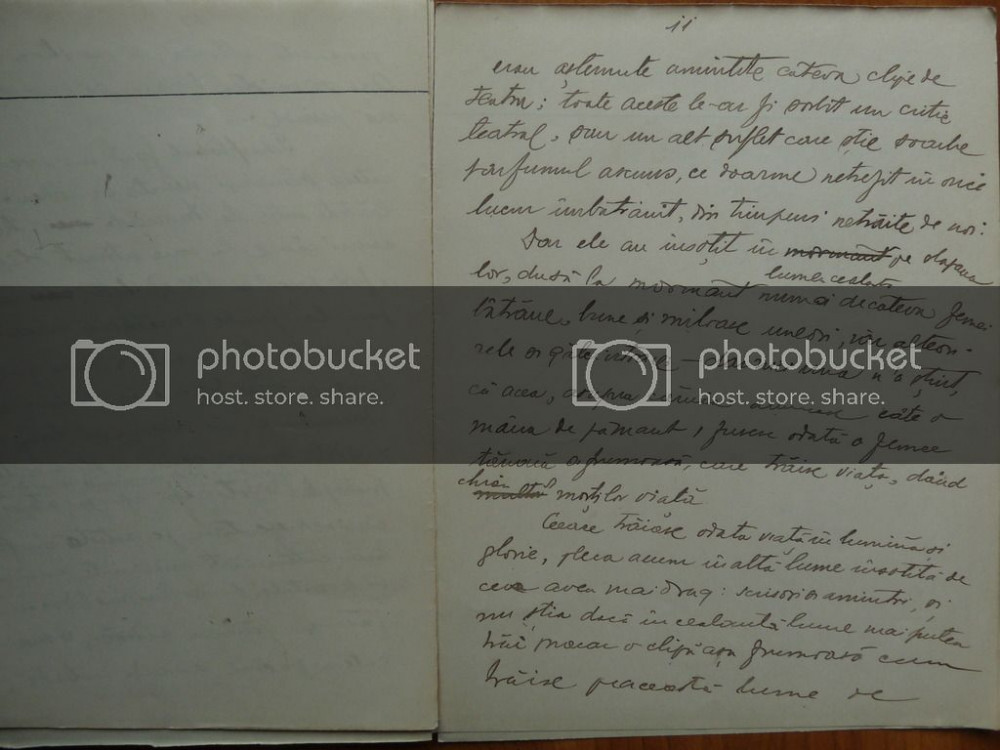 11
erau așternute amintite câteva clipe de
teatru; toate aceste le-ar fi sorbit un critic
teatral, sau un alt suflet care știe soarbe
parfumul ascuns, ce doarme netrezit în orice
lucru îmbătrânit, din timpuri netrăite de noi.
Dar ele au însoțit în mormânt pe stăpâna
lumea cealaltă
lor, dusă la mormânt numai de câteva femei
bătrâne, bune și miloase uneori, iar alteori
rele și n'a știut,
că acea, câte o
mână de pământ, fusese odată o femee
tânără și frumoasă, care trăise viața, dând
chiar
morților viață
Ceeace trăise odată viață în lumină și
glorie, pleca acum în altă lume însoțită de
ceea avea mai drag: scrisori și amintiri, și
nu știa dacă în cealaltă lume mai putea
trăi macar o clipă așa frumoasă cum
trăise pe această lume de
photobucket
host. store. share.
photobucket
host. store. share.